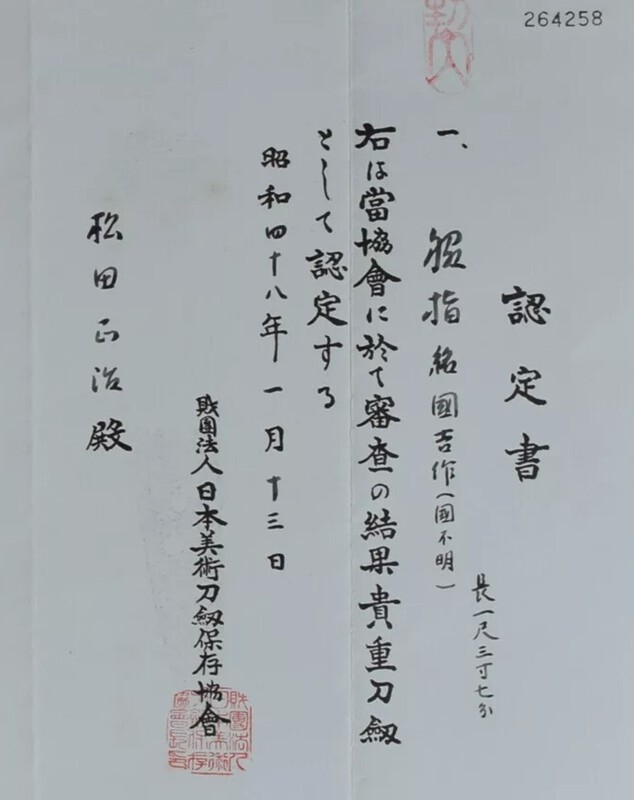 264258
認定書
長一尺三寸七分
一、脇指銘國吉作(国不明)
右は當協會に於て審査の結果貴重刀劔
として認定する
昭和四十八年一月十三日
財團法人日本美術刀劔保存協會
松田正治殿